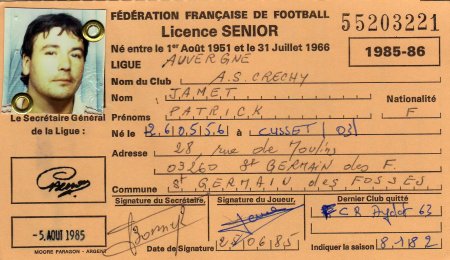 FÉDÉRATION FRANÇAISE DE FOOTBALL
55203221
Licence SENIOR
Né entre le 1er Août 1951 et le 31 Juillet 1966
1985-86
LIGUE AUVERGNE
Nom du Club A.S. CRECHY
Nom JAMET
Nationalité
Prénom PATRICK F
Le Secrétaire Général
de la Ligue :
Né le 26 05 56 à CUSSET (03)
Adresse 28, rue de Moulins
03260 St GERMAIN des F.
Commune St GERMAIN des FOSSES
Signature du Secrétaire,
Signature du Joueur,
Dernier Club quitté
63
-5. AOUT 1985
Date de Signature 25 06 85
Indiquer la saison 81 82
MOORE PARAGON - ARGENT